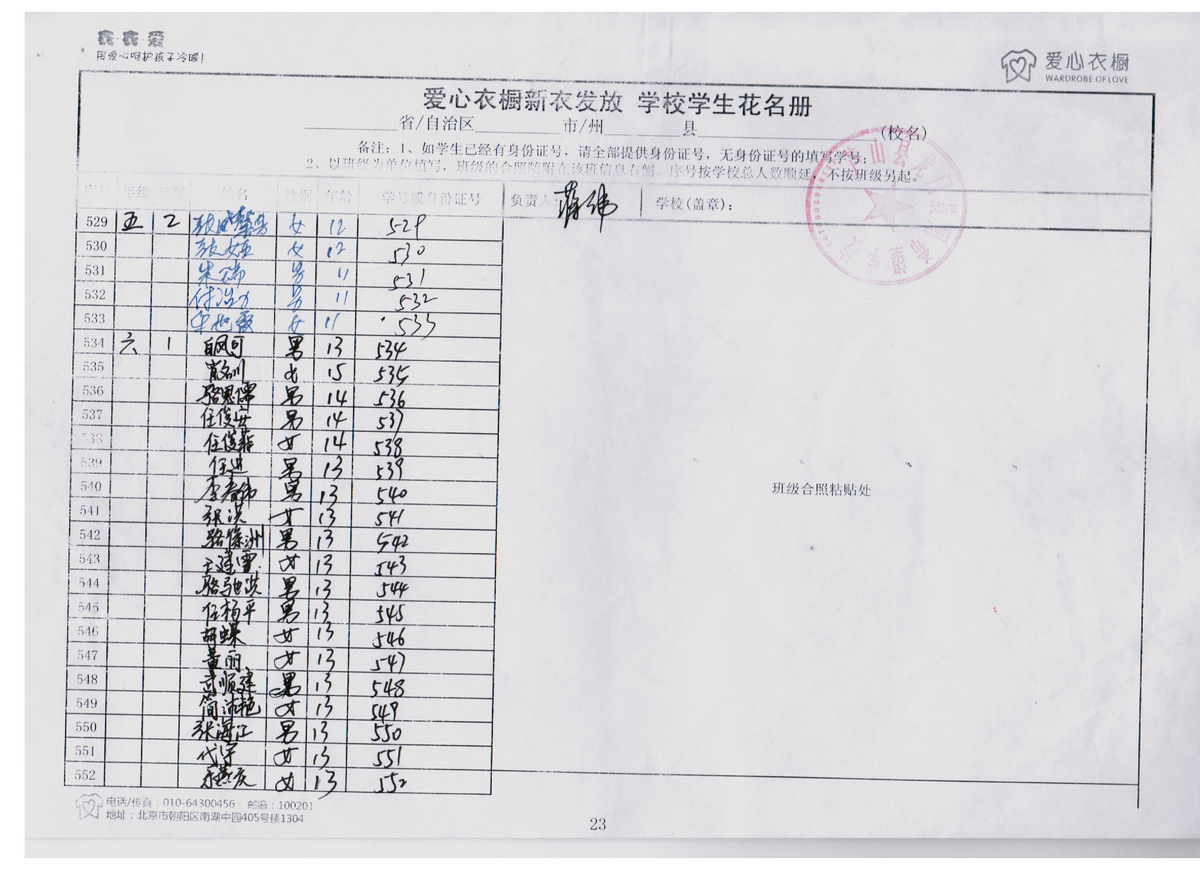 衣·衣·爱
用爱心呵护孩子冷暖!
爱心衣橱
WARDROBE OF LOVE
爱心衣橱新衣发放 学校学生花名册
省/自治区 市/州 县 (校名)
备注: 1、如学生已经有身份证号, 请全部提供身份证号, 无身份证号的填写学号;
2、以班级为单位填写, 班级的合照随附在该班信息右侧。序号按学校总人数顺延, 不按班级另起。
序号 年级 班级 姓名 性别 年龄 学号或身份证号 负责人: 学校(盖章):
529 五 2 女 12 529
530 张娅 女 12 530
531 朱瑞 男 11 531
532 男 11 532
533 女 11 533
534 六 1 男 13 534
535 女 15 535
536 骆思儒 男 14 536
537 任俊安 男 14 537
538 任俊菲 女 14 538
539 任进 男 13 539
540 李春伟 男 13 540
541 张洪 女 13 541
542 骆保洲 男 13 542
543 王建雪 女 13 543
544 骆驰洪 男 13 544
545 任杨平 男 13 545
546 胡蝶 女 13 546
547 董丽 女 13 547
548 男 13 548
549 简沛艳 女 13 549
550 张海江 男 13 550
551 代宇 女 13 551
552 女 13 552
班级合照粘贴处
电话/传真: 010-64300456 邮编: 100201
地址: 北京市朝阳区南湖中园405号楼1304
23